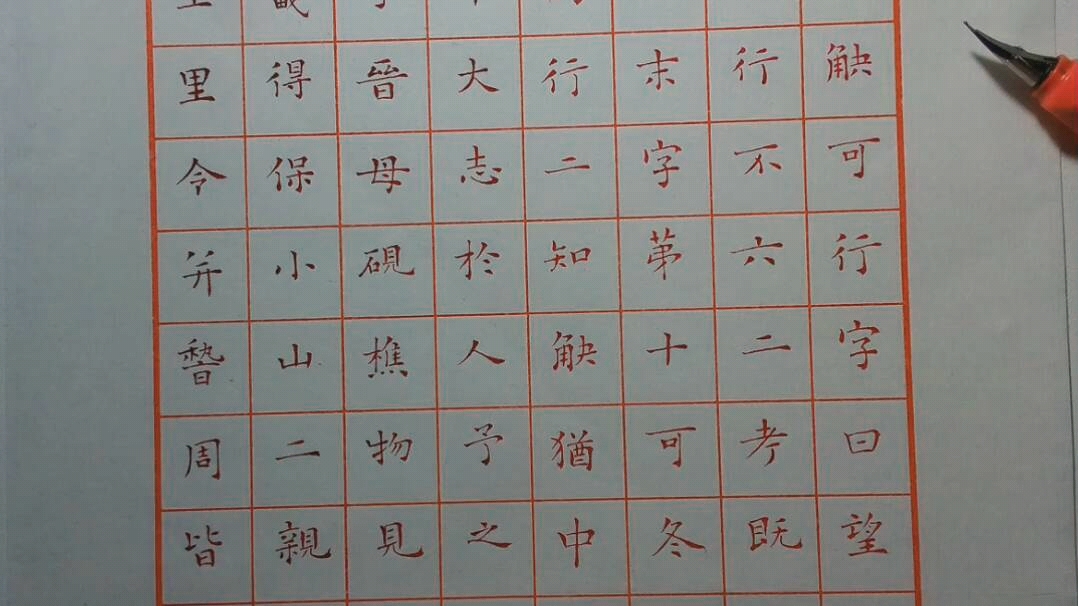 觖可行字曰望
行不六二考既
末字第十可冬
行二知觖猶中
大志於人予之
晉母硯樵物見
得保小山二親
里令并周皆